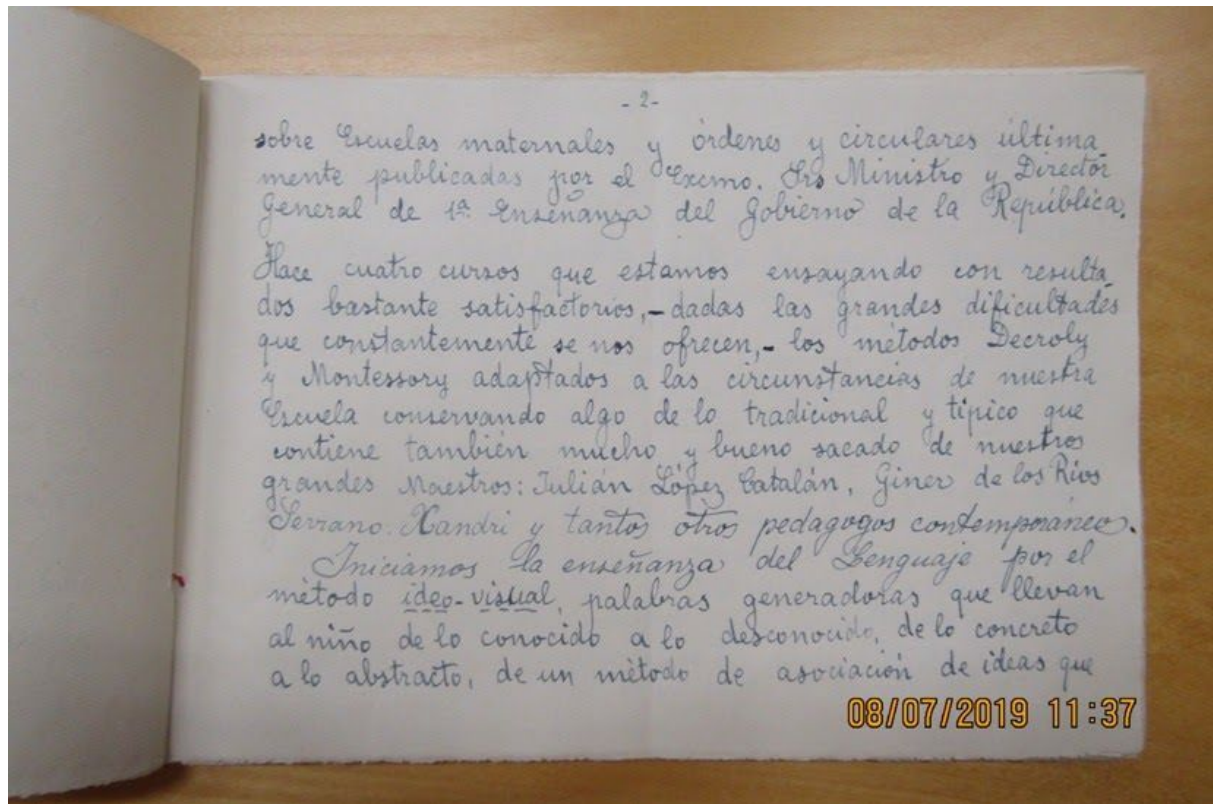 - 2 -
sobre Escuelas maternales y órdenes y circulares última_
mente publicadas por el Excmo. Srs Ministro y Director
General de 1ª Enseñanza del Gobierno de la República.
Hace cuatro cursos que estamos ensayando con resulta_
dos bastante satisfactorios,- dadas las grandes dificultades
que constantemente se nos ofrecen,- los métodos Decroly
y Montessory adaptados a las circunstancias de nuestra
Escuela conservando algo de lo tradicional y típico que
contiene también mucho y bueno sacado de nuestros
grandes Maestros: Julián López Catalán, Giner de los Ríos
Serrano. Xandri y tantos otros pedagogos contemporáneos.
Iniciamos la enseñanza del Lenguaje por el
método ideo-visual, palabras generadoras que llevan
al niño de lo conocido a lo desconocido, de lo concreto
a lo abstracto, de un método de asociación de ideas que
08/07/2019 11:37